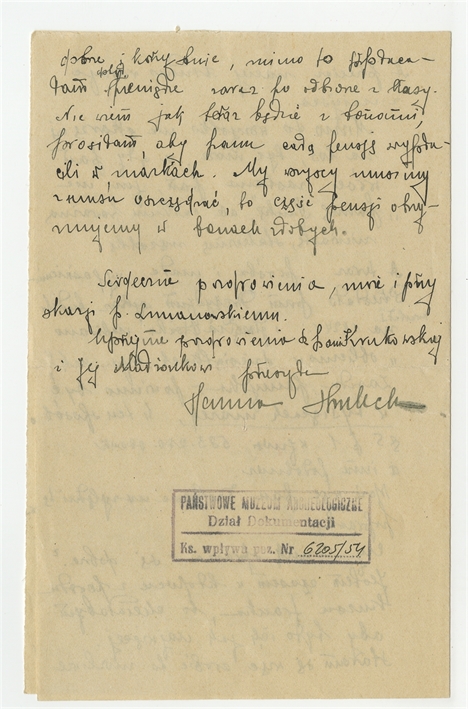 dobre i korzystnie, mimo to wypłaca-
łam pieniądze zaraz po odbiorze z kasy.
Nie wiem jak teraz będzie z bonami,
prosiłam, aby panu całą pensję wypła-
cili w markach. My wszyscy musimy
z musu oszczędzać, bo część pensji otrzy-
mujemy w bonach
Serdeczne pozdrowienia, mnie i przy
okazji p.
Uprzejme pozdrowienia dla Pani Krukowskiej
i Jej Małżonkowi przesyła
Hanna
PAŃSTWOWE MUZEUM ARCHEOLOGICZNE
Dział Dokumentacji
Ks. wpływu poz. Nr 6205/54